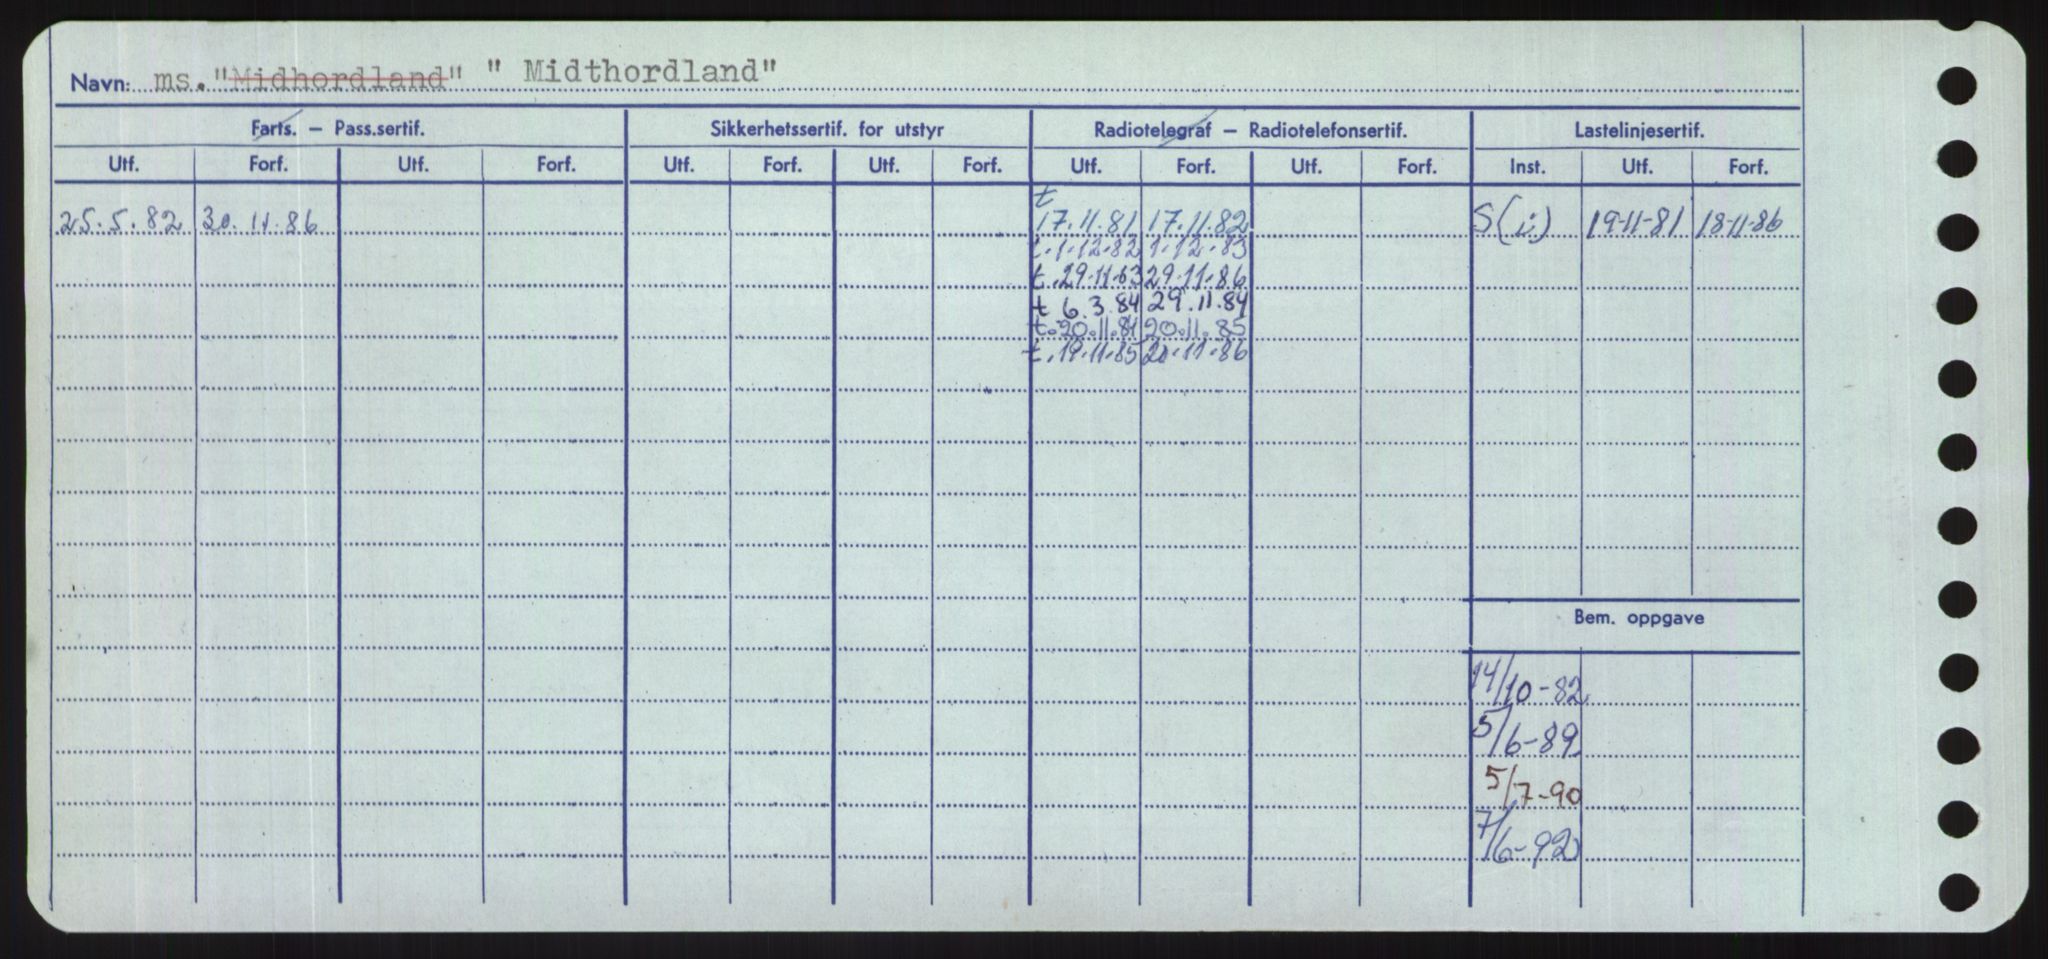 Navn: ms. "Midhordland" " Midthordland"
Farts. – Pass.sertif. Sikkerhetssertif. for utstyr Radiotelegraf – Radiotelefonsertif. Lastelinjesertif.
Utf. Forf. Utf. Forf. Utf. Forf. Utf. Forf. Utf. Forf. Utf. Forf. Inst. Utf. Forf.
t
25.5.82 30.11.86 17.11.81 17.11.82 S(i) 19-11-81 18-11-86
t.1.12.82 1.12.83
t.29.11.83 29.11.86
t 6.3.84 29.11.84
t.20.11.84 20.11.85
t.19.11.85 20.11.86
Bem. oppgave
14/10-82
5/6-89
5/7-90
7/6-92